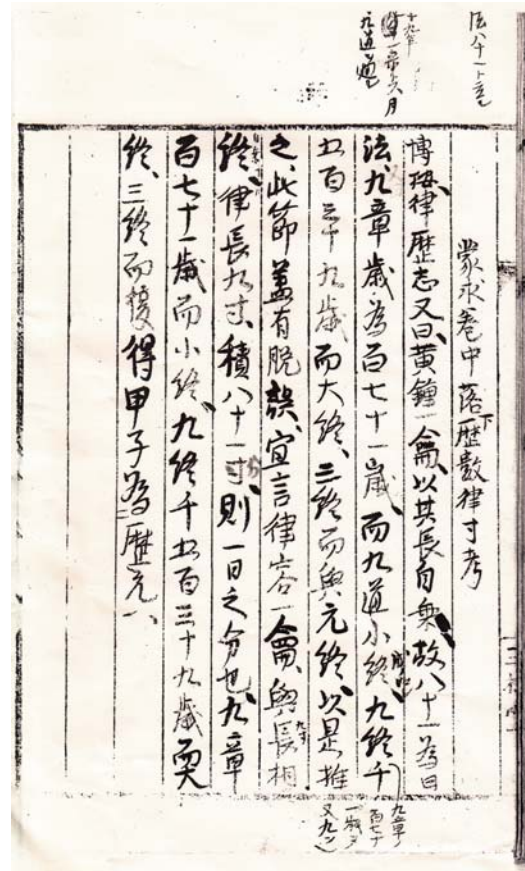 法八十一下亡
十九年
元道凿
蒙求卷中落下歴數律寸考
博按律歴志又曰、黄鍾一龠、以其長自乗、故八十一為日
法、九章歳為百七十一歳、而九道小終、九終千
五百三十九歳而大終、三終而與元終、以是推
之、此節蓋有脱誤、宜言律容一龠、與長相
終、律長九寸、積八十一寸、則一日之分也、九章
百七十一歳而小終、九終千五百三十九歳而大
終、三終而復得甲子為歴元、
九五章
百七十
一歳
又九